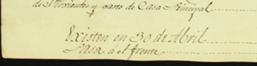 de Sirvientes y gasto de Casa Principal
Existen en 30 de Abril
Pasa al frente